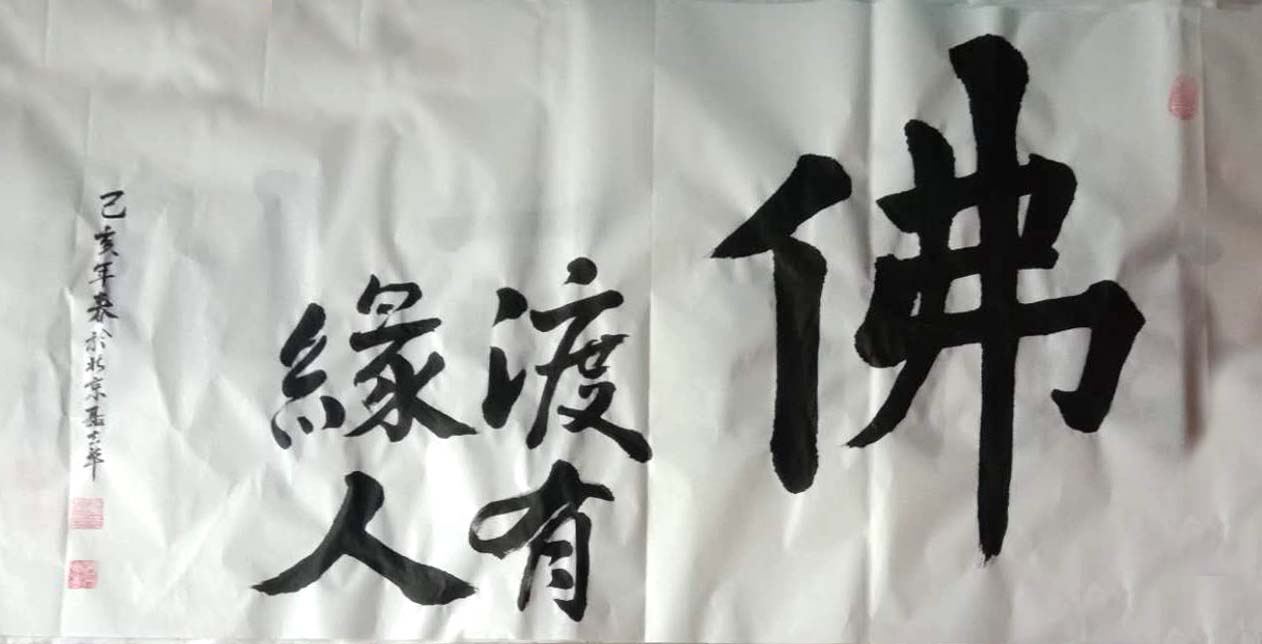 佛
渡有
緣人
己亥年春於北京